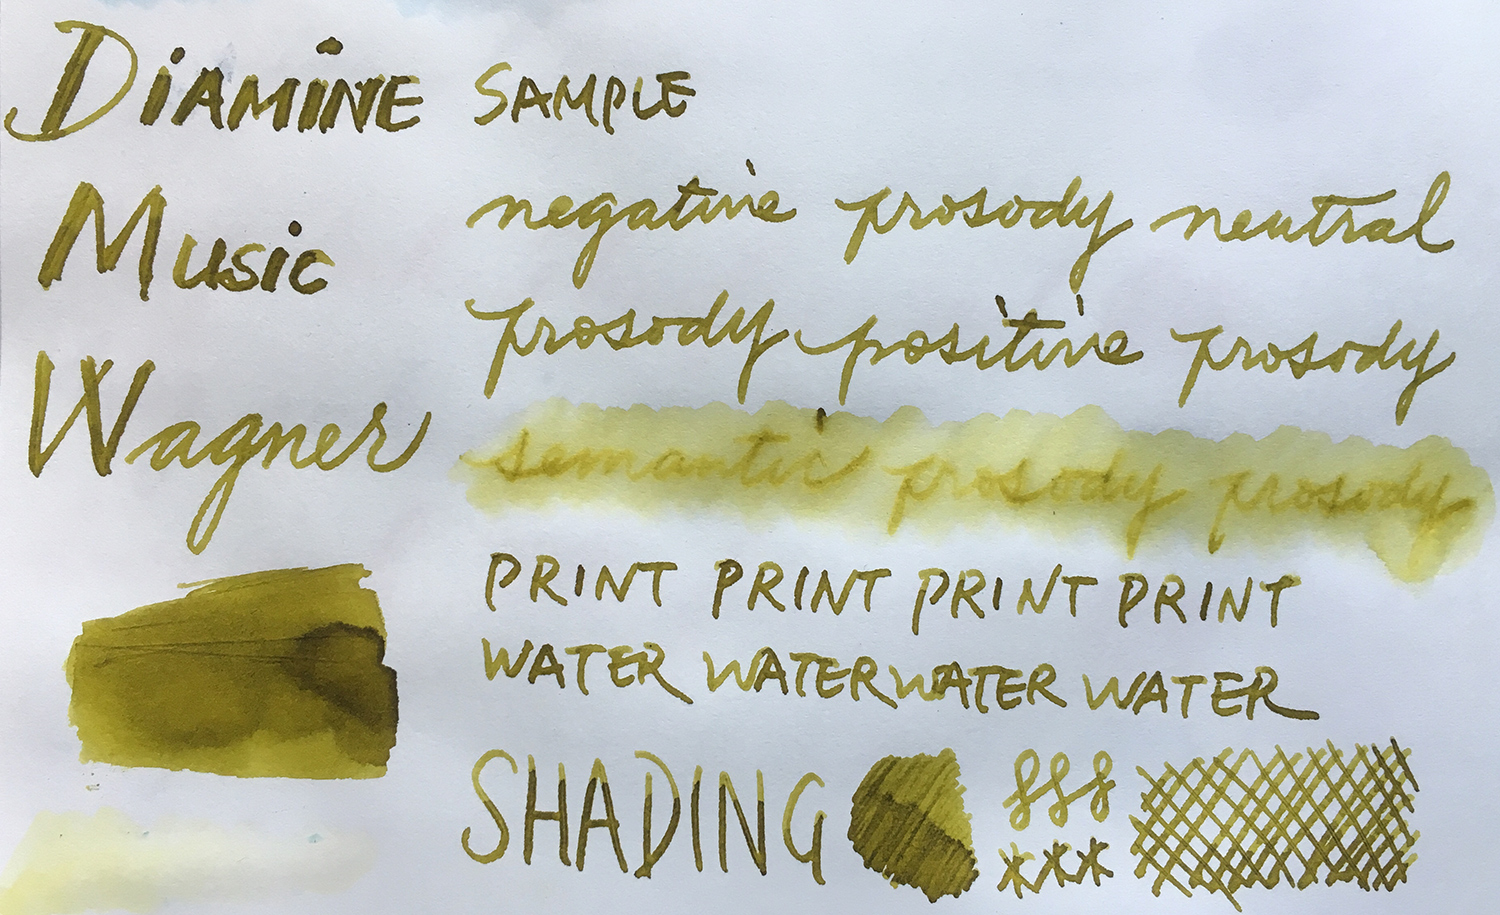 DiAMiNE SAMPLE
Music
Wagner
negative prosody neutral
prosody positive prosody
semantic prosody prosody
PRINT PRINT PRINT PRINT
WATER WATER WATER WATER
SHADING